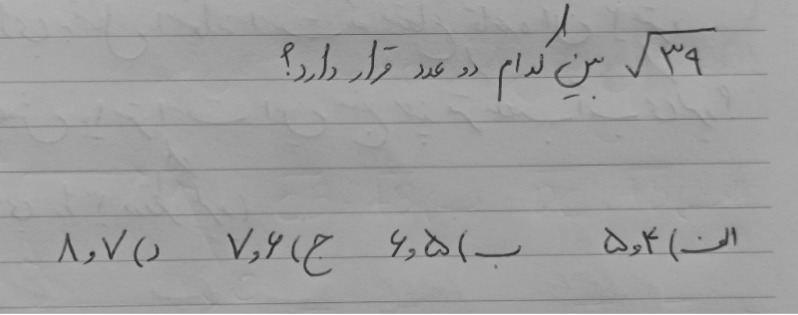 √۳۹ بین کدام دو عدد قرار دارد؟
الف) ۴ و ۵ ب) ۵ و ۶ ج) ۶ و ۷ د) ۷ و ۸